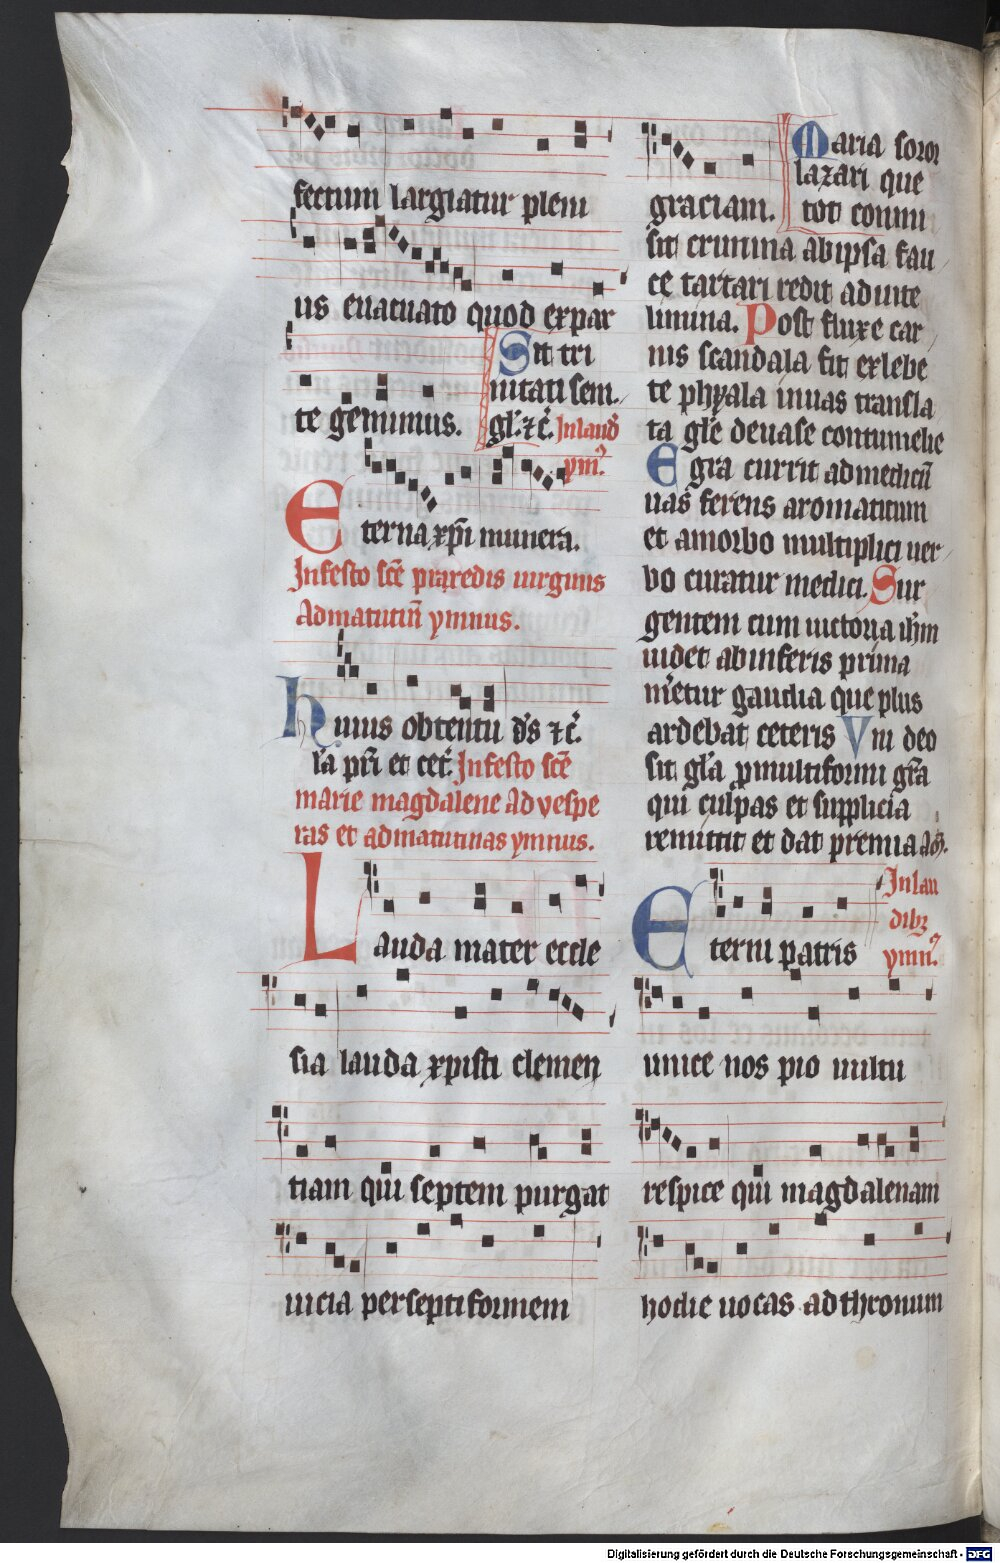 fectum largiatur pleni
us euacuato quod expar
te gemimus. Sit tri
nitati sem.
gl'. ⁊c̃. In laud'
ym̄.
Eterna xp̄i munera.
In festo sc̄e praxedis uirginis
Ad matutin̄ ymnus.
Huius obtentu d's ⁊c̃.
l'a pr̄i et cet'. In festo sc̄e
marie magdalene Ad vespe
ras et ad matutinas ymnus.
Lauda mater eccle
sia lauda xpisti clemen
tiam qui septem purgat
uicia per septiformem
graciam. Maria soror
lazari que
tot conmi
sit crimina ab ipsa fau
ce tartari redit ad uite
limina. Post fluxe car
nis scandala fit ex lebe
te phyala in uas transla
ta gl'e de uase contumelie
Egra currit ad medicū
uas ferens aromaticum
et a morbo multiplici uer
bo curatur medici. Sur
gentem cum uictoria ih'm
uidet ab inferis prima
m'etur gaudia que plus
ardebat ceteris Vni deo
sit gl'a p multiformi gr̄a
qui culpas et supplicia
remittit et dat premia am̄.
Eterni patris In lau
dib'
ymn'.
unice nos pio uultu
respice qui magdalenam
hodie uocas ad thronum
Digitalisierung gefördert durch die Deutsche Forschungsgemeinschaft - DFG